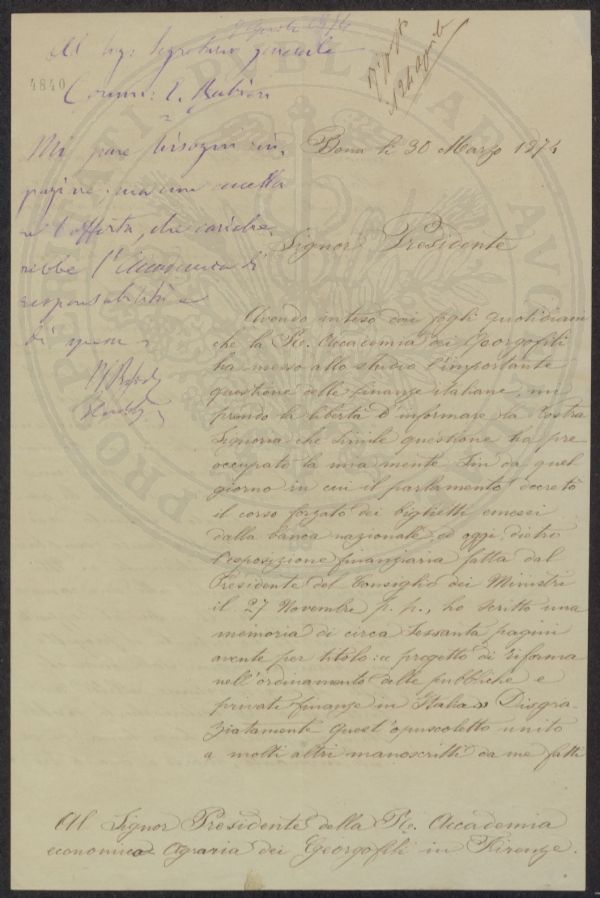 Al Sig. Segretario generale
4840
Comm: L.
Mi pare bisogni rin-
graziare; ma non accetta
l'offerta, che cariche
rebbe l'Accademia di
responsabilità e
di spese.
24 aprile
li 30 Marzo 1874
Signor Presidente
Avendo inteso dai fogli quotidiani
che la Re. Accademia dei Georgofili
ha messo allo studio l'importante
questione delle finanze italiane, mi
prendo la libertà d'informare la Vostra
Signoria che simile questione ha pre
occupato la mia mente sin da quel
giorno in cui il parlamento decretò
il corso forzato dei biglietti emessi
dalla banca nazionale, ed oggi, dietro
l'esposizione finanziaria fatta dal
Presidente del Consiglio dei Ministri
il 27 Novembre p. p., ho scritto una
memoria di circa sessanta pagini
avente per titolo: « progetto di riforma
nell'ordinamento delle pubbliche e
private finanze in Italia » Disgra-
ziatamente quest'opuscoletto unito
a molti altri manoscritti da me fatti
Al Signor Presidente della Re. Accademia
economico Agraria dei Georgofili in Firenze.